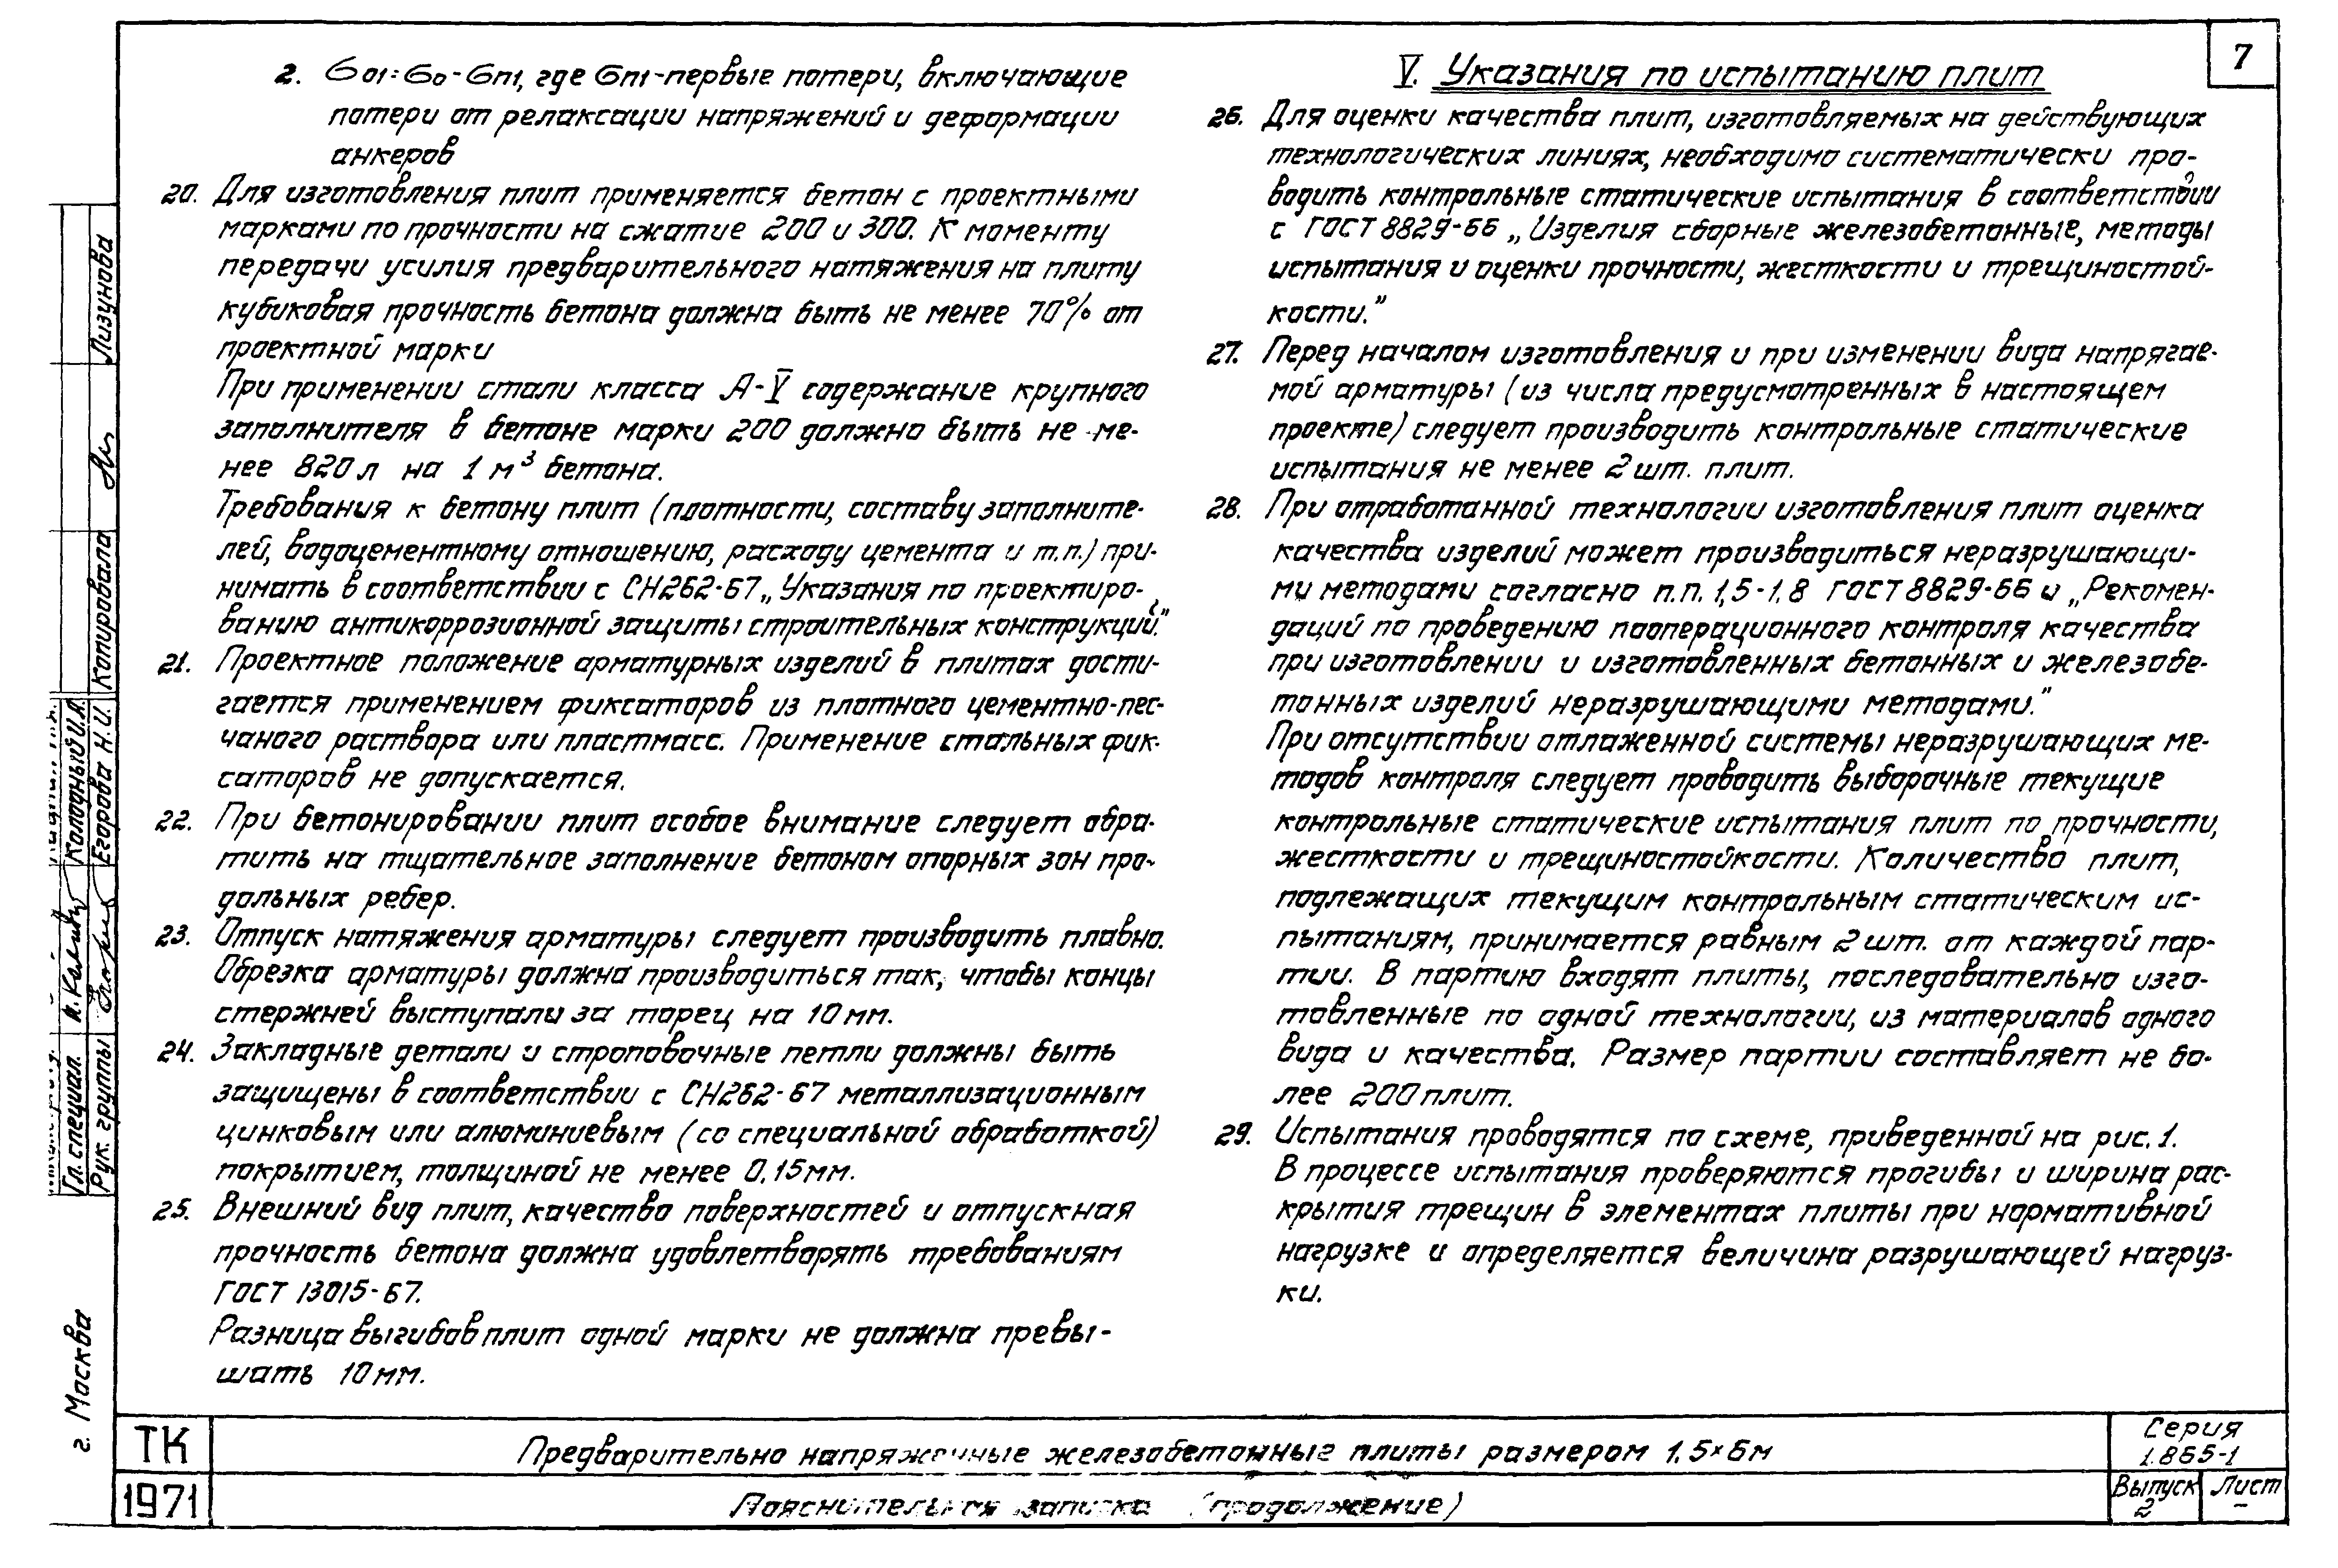 7
2. Ϭ01=Ϭ0-Ϭп1, где Ϭп1-первые потери, включающие
потери от релаксации напряжений и деформации
анкеров
20. Для изготовления плит применяется бетон с проектными
марками по прочности на сжатие 200 и 300. К моменту
передачи усилия предварительного натяжения на плиту
кубиковая прочность бетона должна быть не менее 70% от
проектной марки
При применении стали класса А-V содержание крупного
заполнителя в бетоне марки 200 должно быть не ме-
нее 820л на 1 м³ бетона.
Требования к бетону плит (плотности, составу заполните-
лей, водоцементному отношению, расходу цемента и т.п.) при-
нимать в соответствии с СН262-67 „Указания по проектиро-
ванию антикоррозионной защиты строительных конструкций."
21. Проектное положение арматурных изделий в плитах дости-
гается применением фиксаторов из плотного цементно-пес-
чаного раствора или пластмасс. Применение стальных фик-
саторов не допускается.
22. При бетонировании плит особое внимание следует обра-
тить на тщательное заполнение бетоном опорных зон про-
дольных ребер.
23. Отпуск натяжения арматуры следует производить плавно.
Обрезка арматуры должна производиться так, чтобы концы
стержней выступали за торец на 10мм.
24. Закладные детали и строповочные петли должны быть
защищены в соответствии с СН262-67 металлизационным
цинковым или алюминиевым (со специальной обработкой)
покрытием, толщиной не менее 0.15мм.
25. Внешний вид плит, качество поверхностей и отпускная
прочность бетона должна удовлетворять требованиям
ГОСТ 13015-67.
Разница выгибов плит одной марки не должна превы-
шать 10мм.
V. Указания по испытанию плит
26. Для оценки качества плит, изготовляемых на действующих
технологических линиях, необходимо систематически про-
водить контрольные статические испытания в соответствии
с ГОСТ 8829-66 „Изделия сборные железобетонные, методы
испытания и оценки прочности, жесткости и трещиностой-
кости."
27. Перед началом изготовления и при изменении вида напрягае-
мой арматуры (из числа предусмотренных в настоящем
проекте) следует производить контрольные статические
испытания не менее 2шт. плит.
28. При отработанной технологии изготовления плит оценка
качества изделий может производиться неразрушающи-
ми методами согласно п.п. 1,5-1.8 ГОСТ 8829-66 и „Рекомен-
даций по проведению пооперационного контроля качества
при изготовлении и изготовленных бетонных и железобе-
тонных изделий неразрушающими методами."
При отсутствии отлаженной системы неразрушающих ме-
тодов контроля следует проводить выборочные текущие
контрольные статические испытания плит по прочности,
жесткости и трещиностойкости. Количество плит,
подлежащих текущим контрольным статическим ис-
пытаниям, принимается равным 2шт. от каждой пар-
тии. В партию входят плиты, последовательно изго-
товленные по одной технологии, из материалов одного
вида и качества. Размер партии составляет не бо-
лее 200плит.
29. Испытания проводятся по схеме, приведенной на рис.1.
В процессе испытания проверяются прогибы и ширина рас-
крытия трещин в элементах плиты при нормативной
нагрузке и определяется величина разрушающей нагруз-
ки.
Гл. специал. Колодный И.А.
Рук. группы Егорова Н.И. Копировала Лизунова
г. Москва
ТК Предварительно напряженные железобетонные плиты размером 1.5×6м Серия
1.865-1
1971 Пояснительная записка (продолжение) Выпуск Лист
2 –